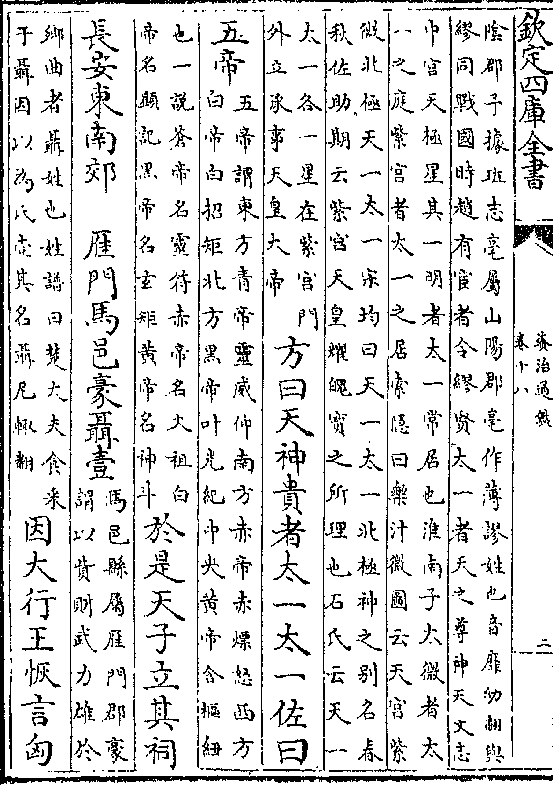 欽定四庫全書
資治通鑑
卷十八
二
陰郡予據班志亳屬山陽郡亳作薄謬姓也音靡幼翻與
繆同戰國時趙有宦者令繆賢太一者天之尊神天文志
中宮天極星其一明者太一常居也淮南子太微者太
一之庭紫宮者太一之居索隱曰樂汁徵圖云天宮紫
微北極天一太一宋均曰天一太一北極神之别名春
秋佐助期云紫宮天皇曜魄寶之所理也石氏云天一
太一各一星在紫宮門
外立承事天皇大帝
方曰天神貴者太一太一佐曰
五帝
五帝謂東方青帝靈威仰南方赤帝赤熛怒西方
白帝白招矩北方黑帝叶光紀中央黄帝含樞紐
也一説蒼帝名靈符赤帝名火祖白
帝名顯記黑帝名玄矩黄帝名神斗
於是天子立其祠
長安東南郊　雁門馬邑豪聶壹
馬邑縣屬雁門郡豪
謂以貲財武力雄於
鄉曲者聶姓也姓譜曰楚大夫食采
于聶因以為氏壹其名聶尼輒翻
因大行王恢言匈